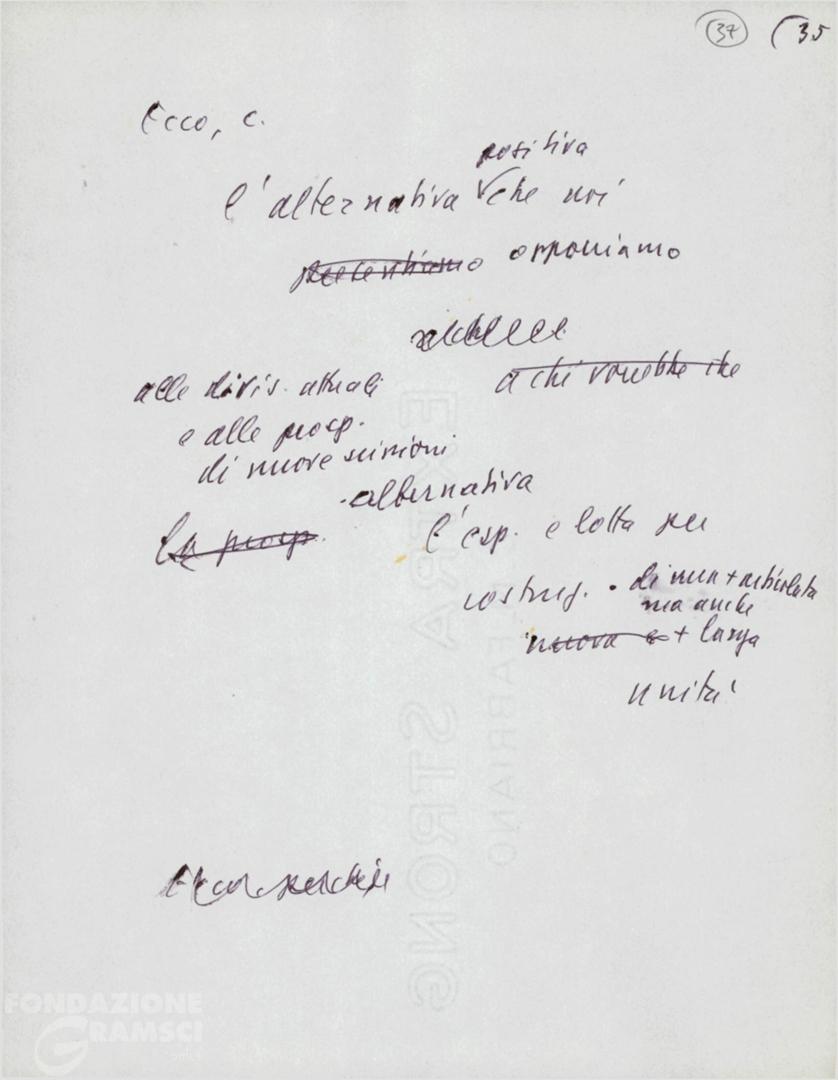 37 35
Ecco, c.
positiva
l'alternativa che noi
presentiamo opponiamo
alle divis. attuali
a chi vorrebbe che
e alle prosp.
di nuove scissioni
alternativa
la prosp.
l'esp. e lotta per
costruz. di una + articolata
ma anche
nuova e + larga
unità
EXTRA STRONG
FABRIANO
FONDAZIONE
GRAMSCI